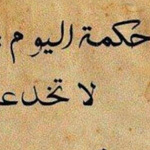 حكمة اليوم
لا تخدع